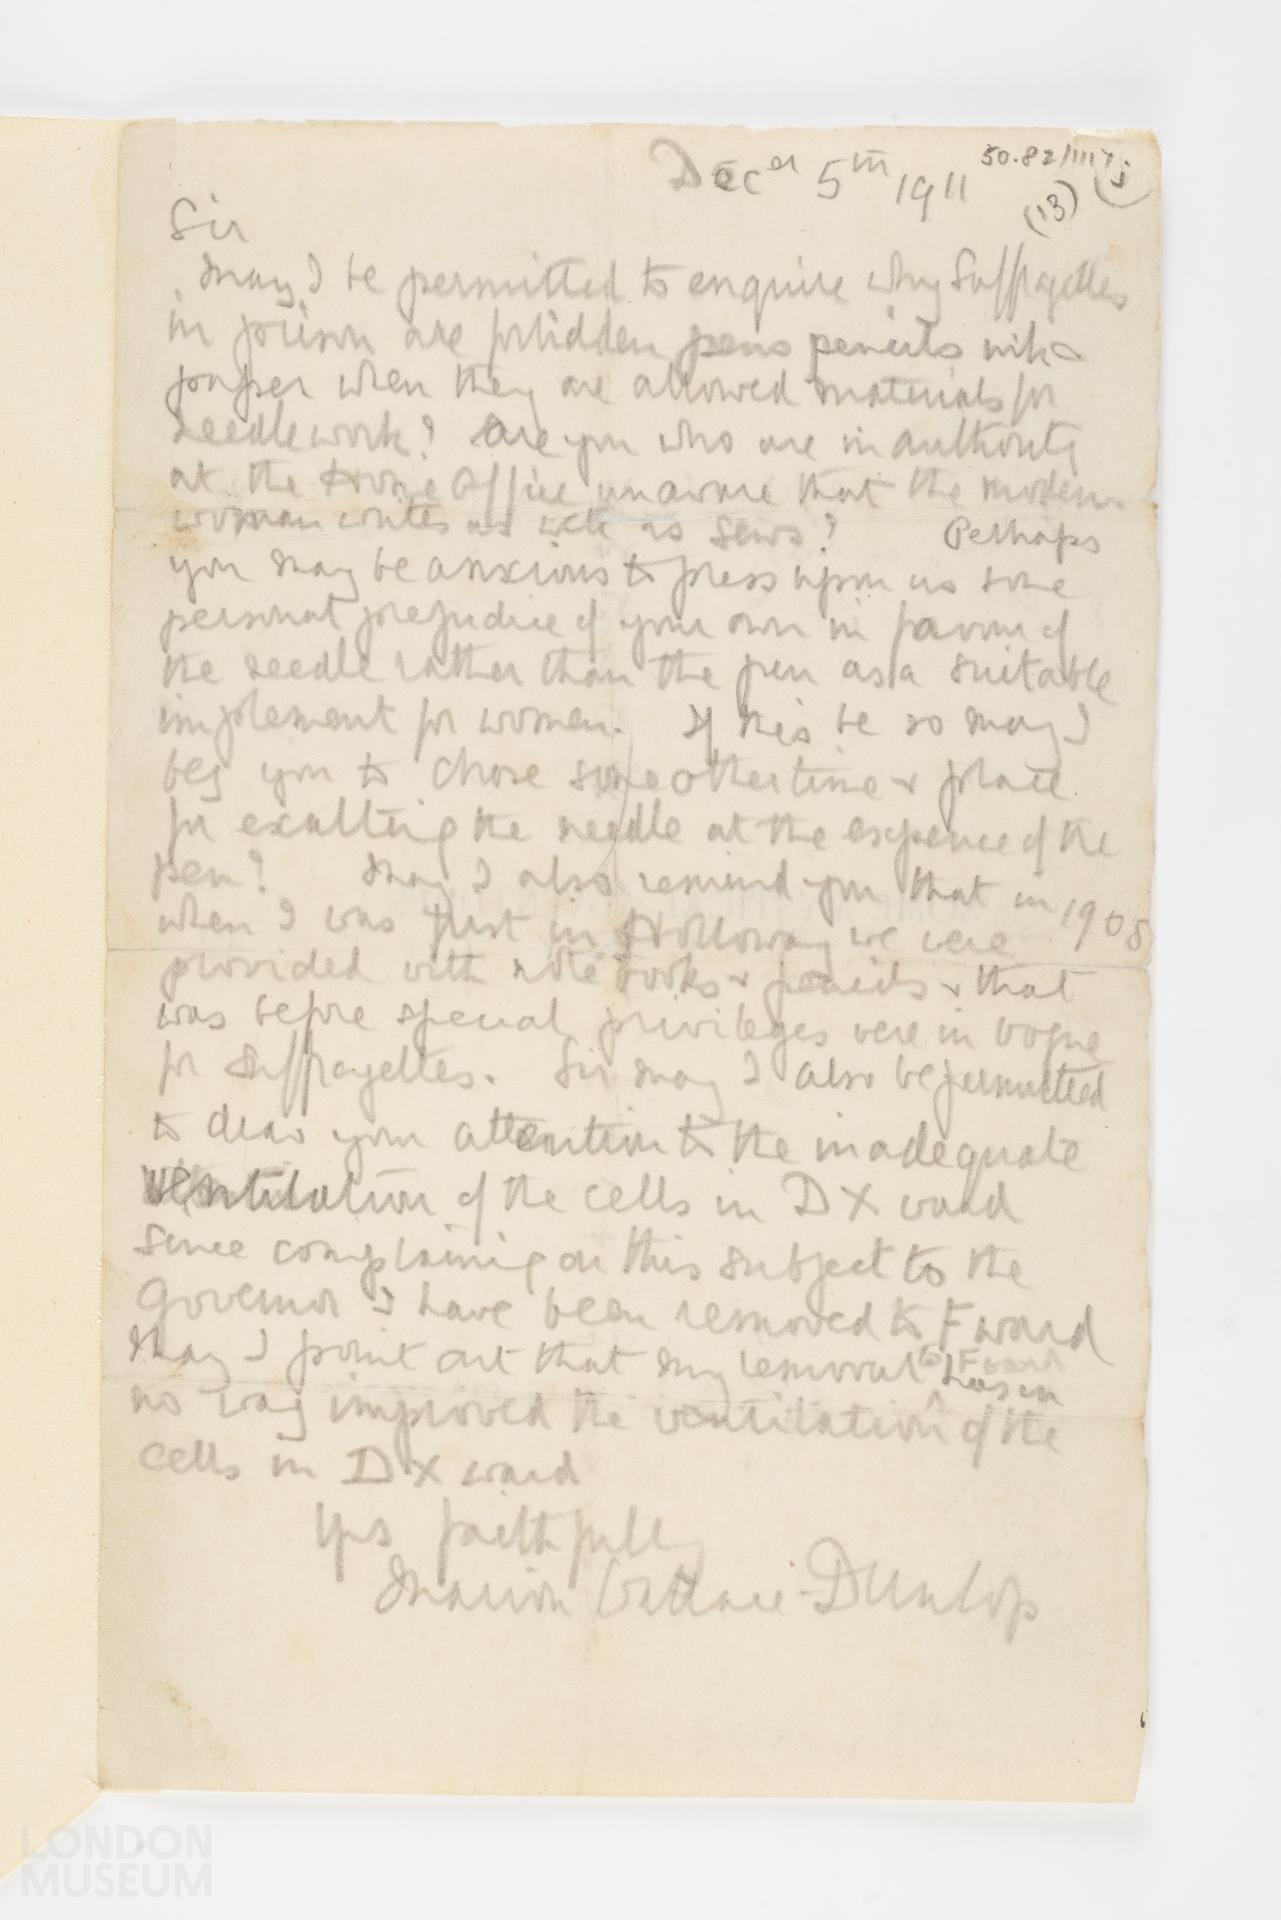 Decer 5th 1911
50.82/1117 j
(13)
Sir
May I be permitted to enquire why Suffragettes
in prison are forbidden pens pencils ink &
paper when they are allowed materials for
needlework? Are you who are in authority
at the Home Office unaware that the modern
woman writes as well as sews? Perhaps
you may be anxious to press upon us some
personal prejudice of your own in favour of
the needle rather than the pen as a suitable
implement for women. If this be so may I
beg you to chose some other time & place
for exalting the needle at the expence of the
pen? May I also remind you that in 1908
when I was first in Holloway we were
provided with note books & pencils & that
was before special privileges were in vogue
for Suffragettes. Sir may I also be permitted
to draw your attention to the inadequate
ventilation of the cells in D X ward
Since complaining on this subject to the
Governor I have been removed to F ward
May I point out that my removal to F ward has in
no way improved the ventilation of the
cells in D X ward
Yrs faithfully
Marion Wallace-Dunlop
LONDON
MUSEUM